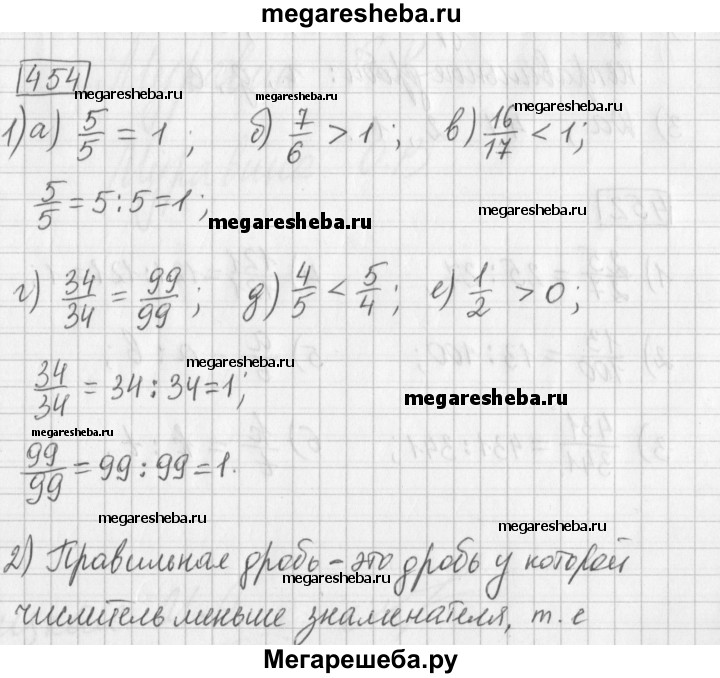 megaresheba.ru
454
megaresheba.ru
megaresheba.ru
1) а) 5/5 = 1 ; б) 7/6 > 1 ; в) 16/17 < 1;
megaresheba.ru
5/5 = 5 : 5 = 1 ;
megaresheba.ru
megaresheba.ru
г) 34/34 = 99/99 ; д) 4/5 < 5/4 ; е) 1/2 > 0 ;
megaresheba.ru
megaresheba.ru
34/34 = 34 : 34 = 1;
megaresheba.ru
megaresheba.ru
99/99 = 99 : 99 = 1.
megaresheba.ru
megaresheba.ru
2) Правильная дробь – это дробь у которой
megaresheba.ru
числитель меньше знаменателя, т. е
Мегарешеба.ру